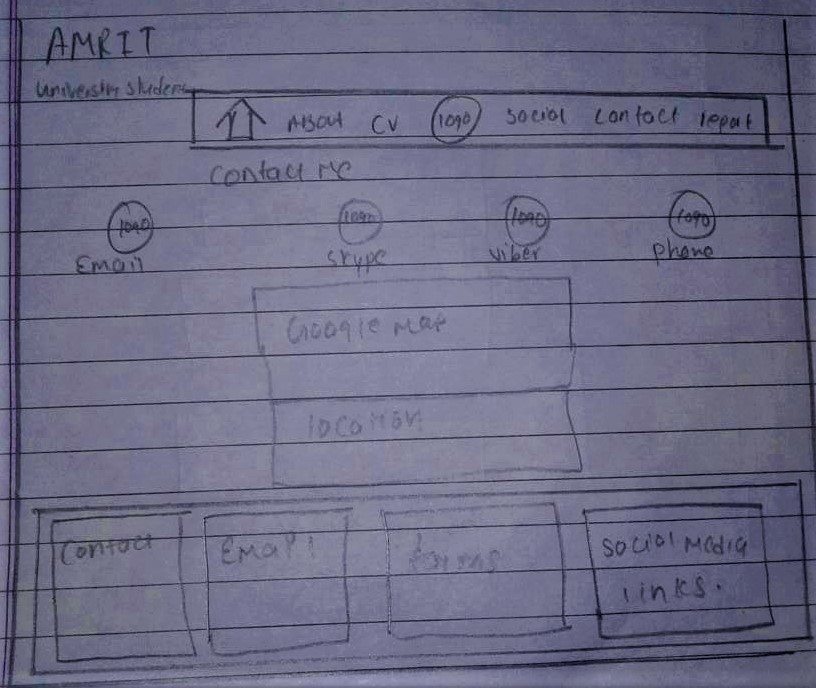 AMRIT
University student
About CV logo social contact repart
Contact Me
logo logo logo logo
Email skype viber phone
Google Map
location
Contact Email forms social media
links.